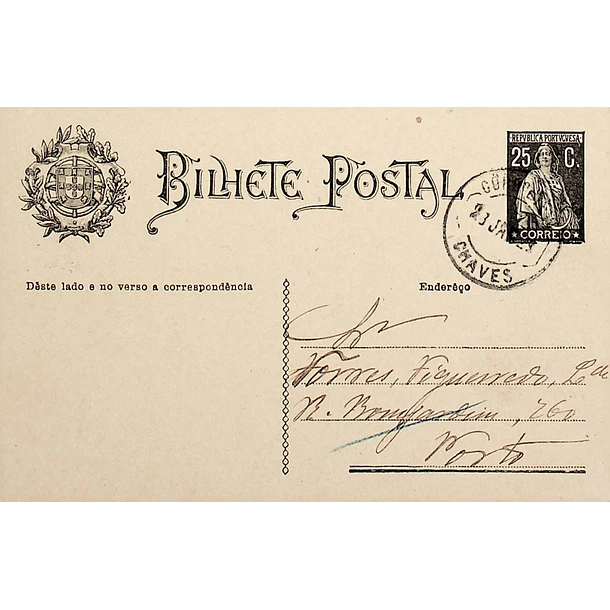 BILHETE POSTAL
REPVBLICA PORTVGVESA
25 C.
CORREIO
23 JAN
CHAVES
Dêste lado e no verso a correspondência
Enderêço
Sr
Torres, Figueiredo, L.da
R. Bomjardim, 260
Porto